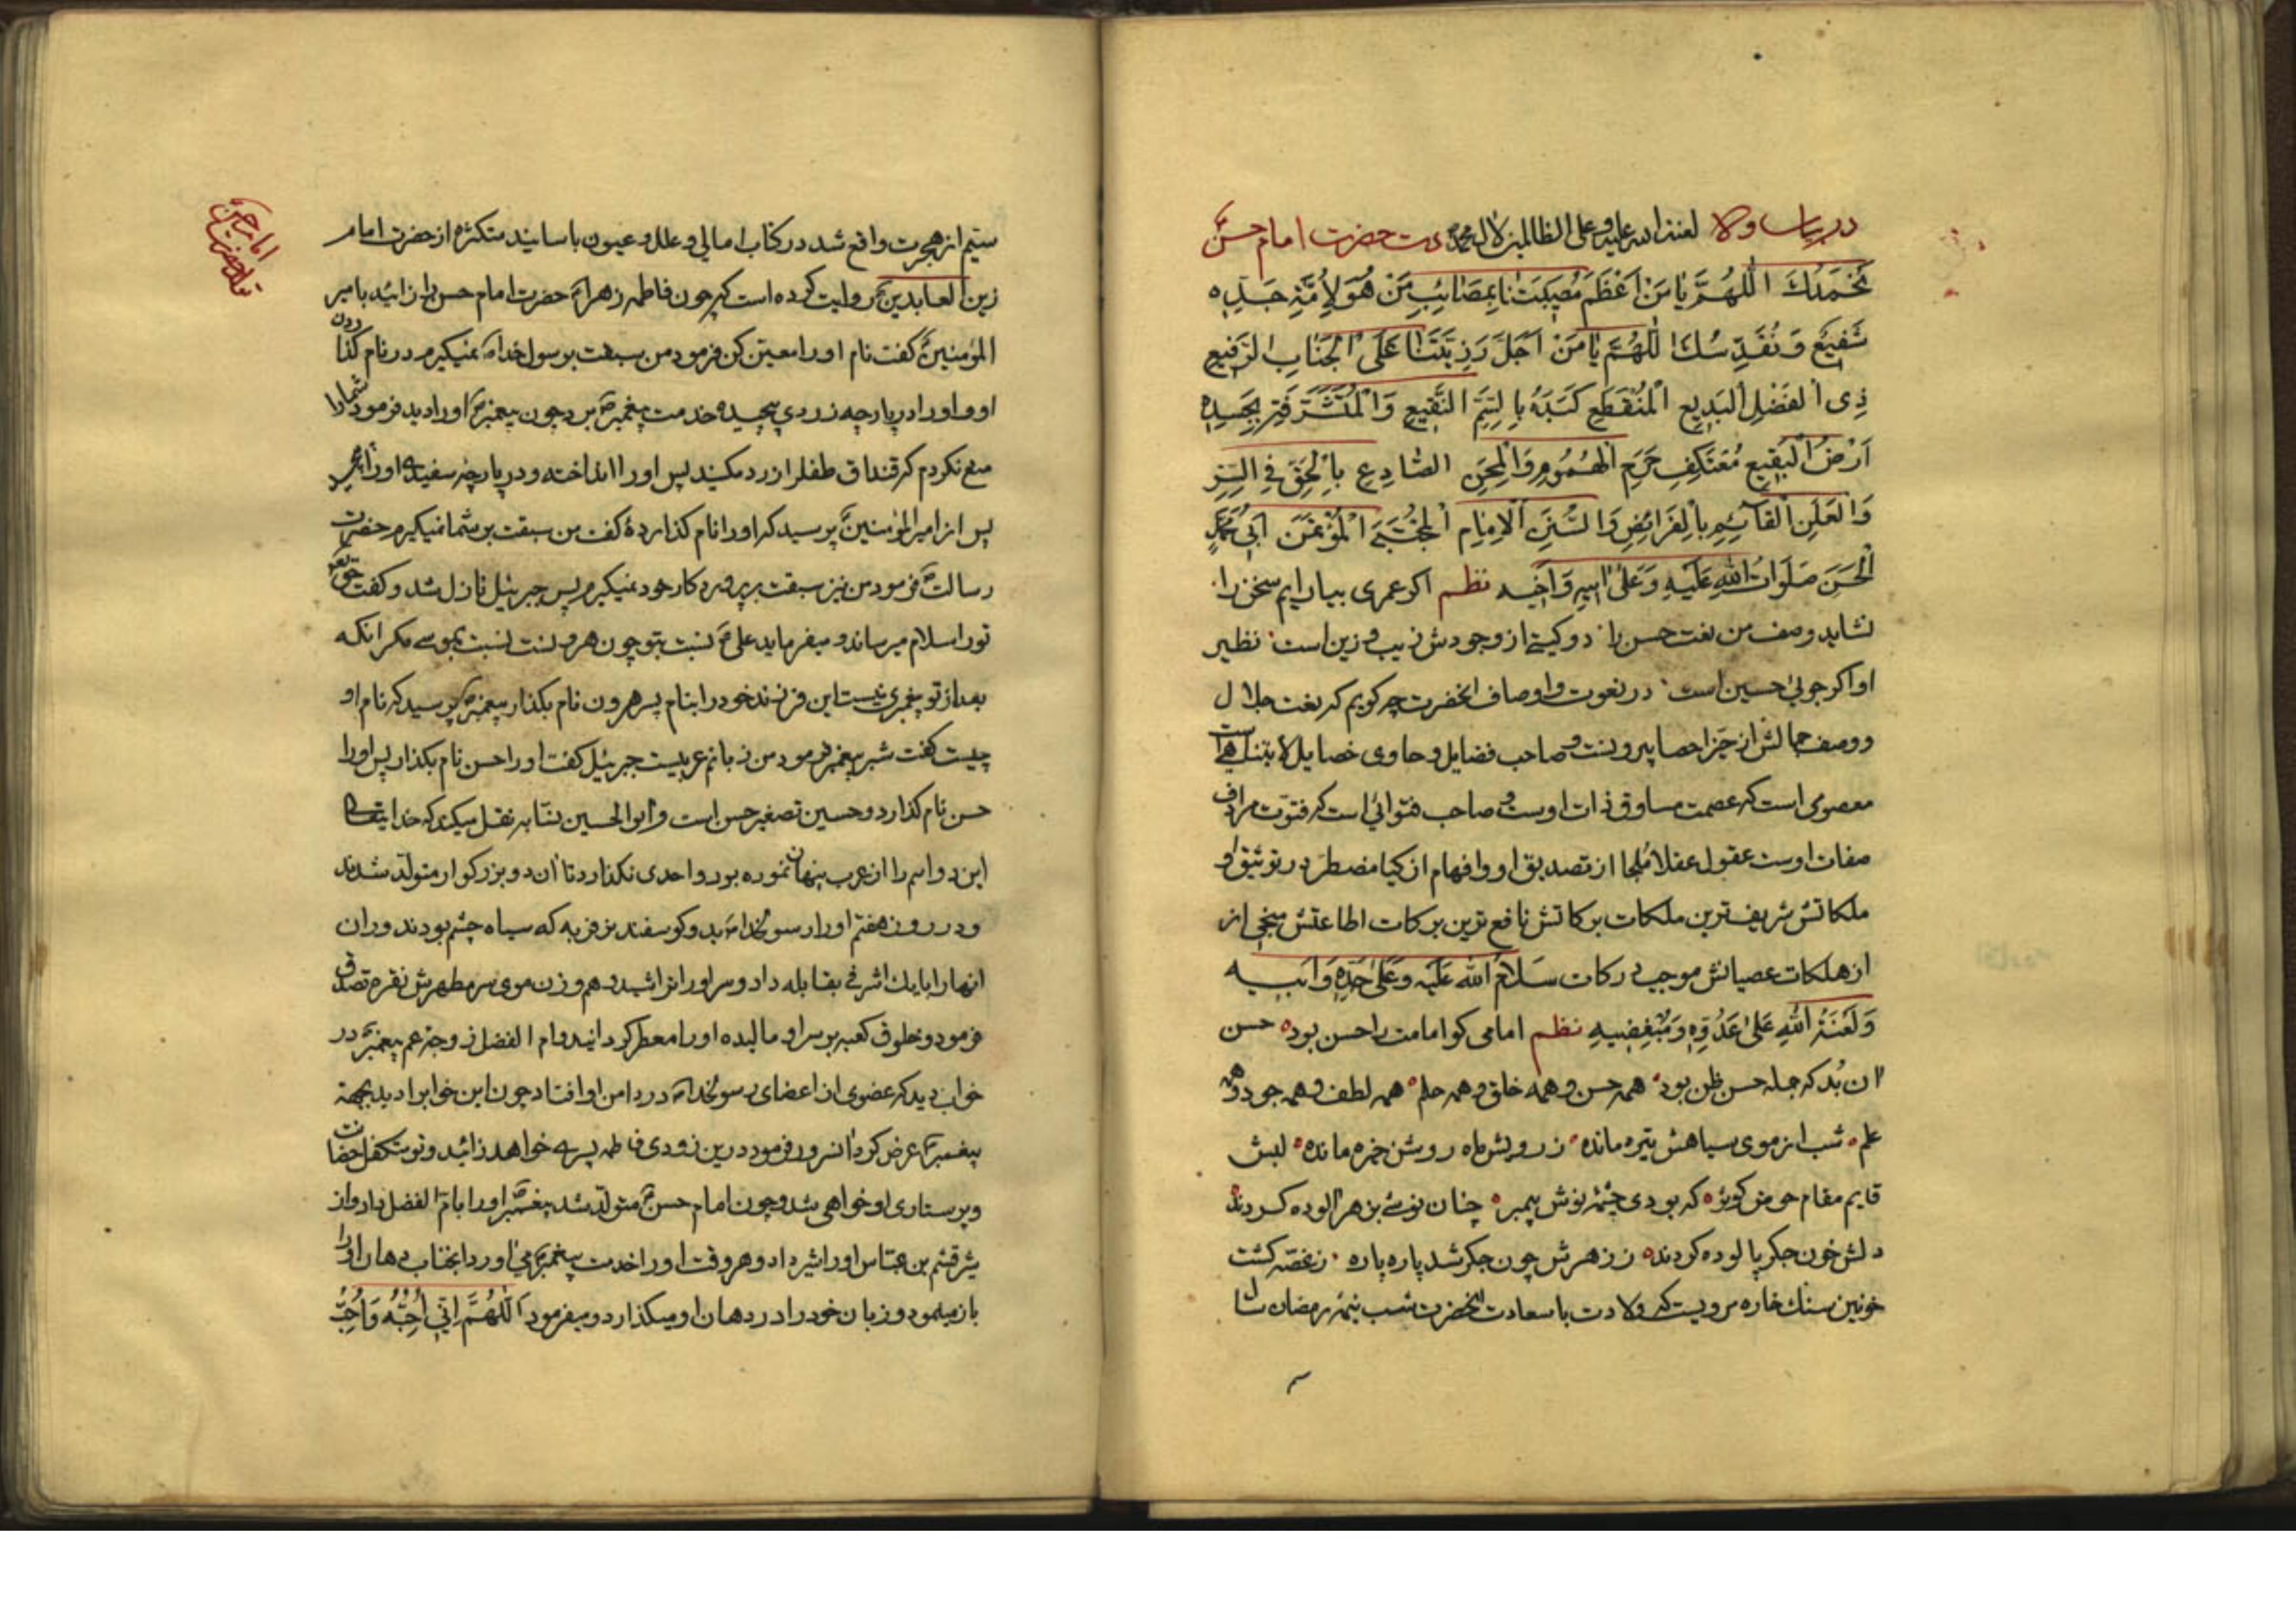 در بیان ولا لعنة الله علیه و علی الظالمین لآل محمد دت حضرت امام حسن
نَحْمَدُكَ اللّهُمَّ يا مَنْ اَعْظَمَ مُصيبَتَنا بِمَصائِبِ مَنْ هُوَ لِاُمَّةِ جَدِّه
شَفيعٌ وَ نُقَدِّسُكَ اللّهُمَّ يا مَنْ اَجَلَّ رَزِيَّتَنا عَلَی الْجَنابِ الرَّفيعِ
ذِی الْفَضْلِ الْبَديعِ الْمُنْقَطِعِ كَبَدُهُ بِالسَّمِّ النَّقيعِ وَالْمُتَشَرِّفَةِ بِجَسَدِهِ
اَرْضُ الْبَقيعِ مُعْتَكِفِ حَرَمِ الْهُمُومِ وَالْمِحَنِ الصّادِعِ بِالْحَقِّ فِی السِّرِّ
وَالْعَلَنِ الْقآئِمِ بِالْفَرائِضِ وَالسُّنَنِ اَلْاِمامِ الْمُجْتَبَی الْمُؤْتَمَنِ اَبی مُحَمَّدٍ
الْحَسَنِ صَلَواتُ اللهِ عَلَيْهِ وَعَلی اَبيهِ وَاَخيه نظم اکر عمری بیارایم سخن را
نشاید وصف من نعت حسن را دو کیتی از وجودش زیب و زین است نظیر
او اکر جوئی حسین است در نعوت و اوصاف انحضرت چه کویم که نعت جلال
و وصف جمالش از حیز احصا بیرونست و صاحب فضایل و حاوی خصایل لا یتناهی است
معصومی است که عصمت مساوق ذات اوست و صاحب فتوائی است که فتوت مرادف
صفات اوست عقول عقلا ملجا از تصدیق او و افهام ازکیا مضطر در توثیق او
ملکاتش شریف ترین ملکات برکاتش نافع ترین برکات اطاعتش منجی از
از هلکات عصیانش موجب درکات سَلامُ الله عَلَيْه وَعَلی جَدِّهِ وَاَبيه
وَلَعْنَةُ اللهِ عَلی عَدُوِّهِ وَمُبْغِضيهِ نظم امامی کو امامت را حسن بود حسن
ان بُد که جمله حسن ظن بود همه حسن و همه خلق و همه حلم همه لطف و همه جود و همه
علم شب از موی سیاهش تیره مانده ز رویش ماه روشن خیره مانده لبش
قایم مقام حوض کوثر که بودی چشمهٔ نوش پیمبر چنان نوشی بزهر الوده کردند
دلش خون جکر پالوده کردند ز زهرش چون جکر شد پاره پاره ز غصه کشت
خونین سنك خاره مرویست که ولادت باسعادت انحضرت شب نیمهٔ رمضان سال
ستیم از هجرت واقع شد در کتاب امالی و علل و عیون باسانید متکثره از حضرت امام
زین العابدین روایت کرده است که چون فاطمه زهرا حضرت امام حسن را زائید بامیر
المؤمنین کفت نام او را معین کن فرمود من سبقت برسول خدا نمیکیرم در نام کذاردن
او و او را در پارچه زردی پیچیده خدمت پیغمبر برد چون پیغمبر او را دید فرمود شما را
منع نکردم که قنداق طفل را زرد مکنید پس او را انداخته و در پارچه سفیدی او را پیچید
پس از امیرالمؤمنین پرسید که او را نام کذاردهٔ کفت من سبقت بر شما نمیکیرم حضرت
رسالت فرمود من نیز سبقت بر پروردکار خود نمیکیرم پس جبرئیل نازل شد و کفت حق تعالی
تو را سلام میرساند و میفرماید علی نسبت بتو چون هرونست نسبت بموسی مکر انکه
بعد از تو پیغمبری نیست این فرزند خود را بنام پسر هرون نام بکذار پیغمبر پرسید که نام او
چیست کفت شبر پیغمبر فرمود من زبانم عربیست جبرئیل کفت او را حسن نام بکذار پس او را
حسن نام کذارد و حسین تصغیر حسن است و ابو الحسین نسابه نقل میکند که خدایتعالی
این دو اسم را از عرب پنهان نموده بود و احدی نکذارد تا ان دو بزرکوار متولد شدند
و در روز هفتم او را رسولخدا بدو کوسفند نر فربه که سیاه چشم بودند و ران
انها را با یك اشرفی بقابله داد و سر او را تراشید و هم وزن موی سر مطهرش نقره تصدق
فرمود و خلوق کعبه بر سر او مالیده او را معطر کردانید و ام الفضل زوجهٔ عم پیغمبر در
خواب دید که عضوی از اعضای رسولخدا در دامن او افتاد چون این خواب را دید بجهة
پیغمبر عرض کرد انسرور فرمود درین زودی فاطمه پسری خواهد زائید و تو متکفل حضانت
و پرستاری او خواهی شد و چون امام حسن متولد شد پیغمبر او را بام الفضل داد و از
شیر قثم بن عباس او را شیر داد و هر وقت او را خدمت پیغمبر می اورد انجناب دهان او را
باز مینمود و زبان خود را در دهان او میکذارد و میفرمود اَللّهُمَّ اِنّی اُحِبُّهُ وَ اُحِبُّ